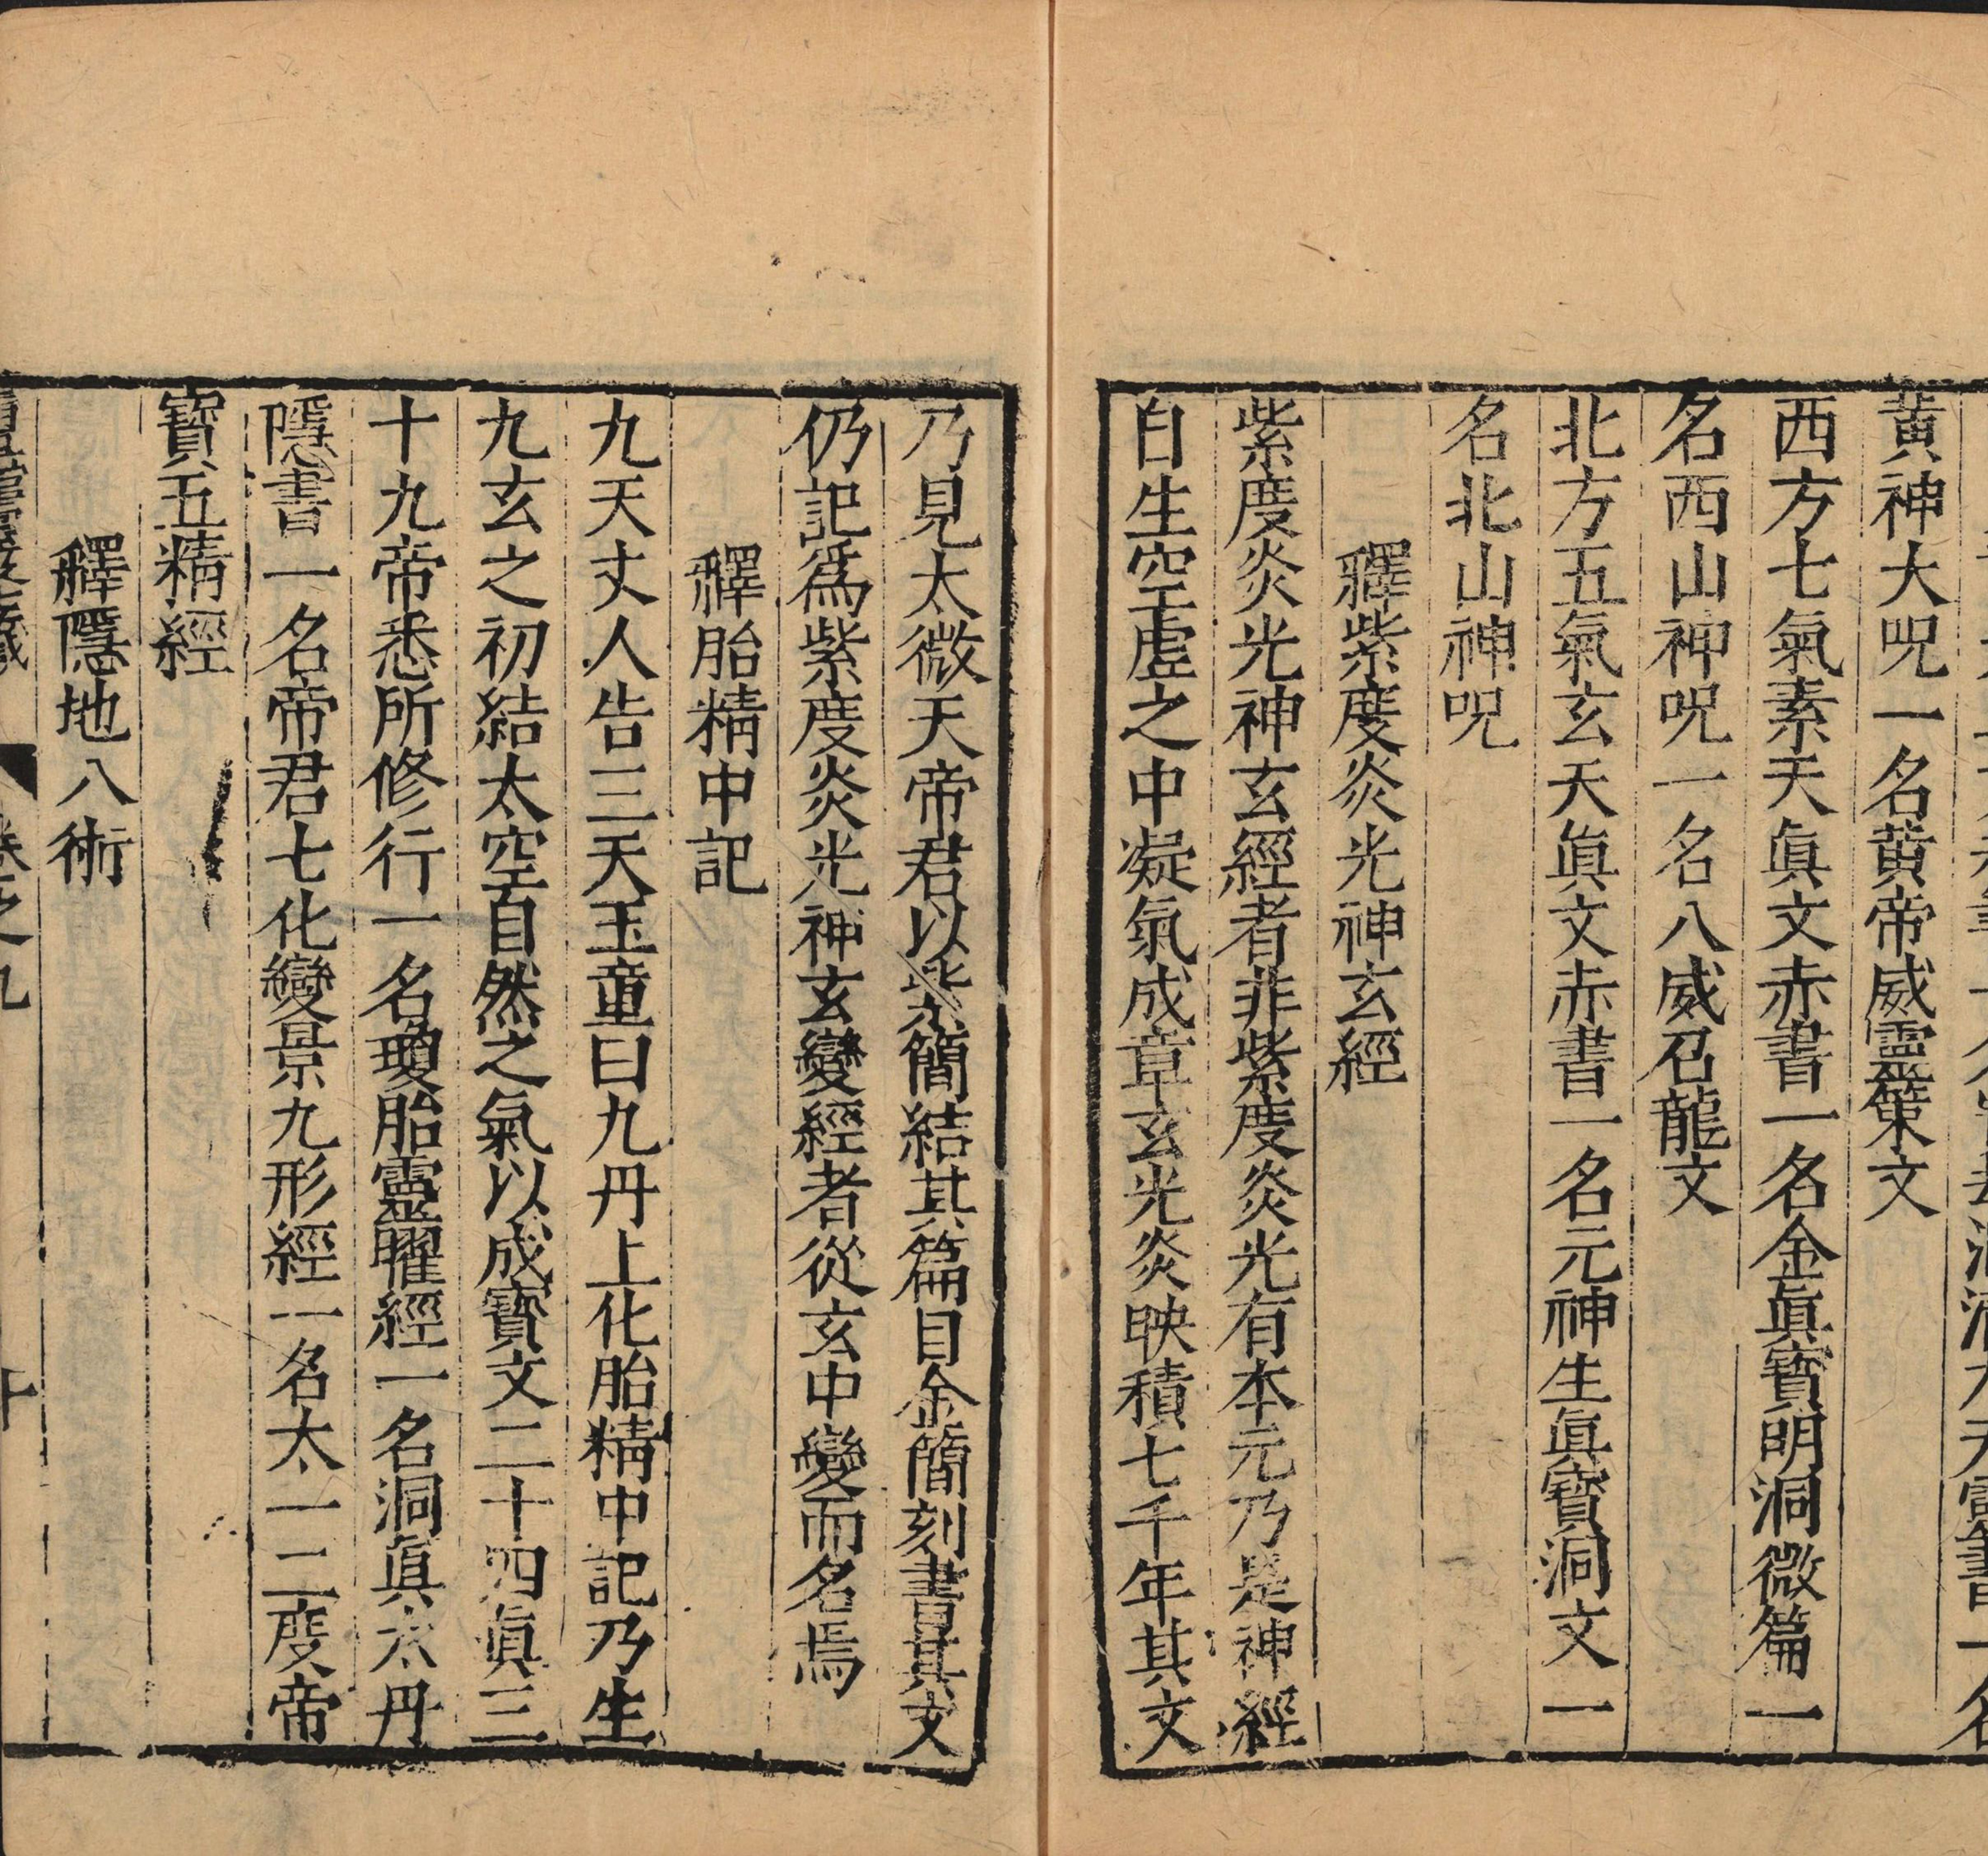 黃神大呪一名黃帝威靈策文
西方七氣素天眞文赤書一名金眞寶明洞微篇一
名西山神呪一名八威召龍文
北方五氣玄天眞文赤書一名元神生眞寶洞文一
名北山神呪
釋紫度炎光神玄經
紫度炎光神玄經者非紫度炎光有本元乃是神經
自生空虛之中凝氣成章玄光炎映積七千年其文
乃見太微天帝君以紫簡結其篇目金簡刻書其文
仍記爲紫度炎光神玄變經者從玄中變而名焉
釋胎精中記
九天丈人告三天玉童曰九丹上化胎精中記乃生
九玄之初結太空自然之氣以成寶文二十四眞三
十九帝悉所修行一名瓊胎靈曜經一名洞眞太丹
隱書一名帝君七化變景九形經一名太一二度帝
寶五精經
釋隱地八術
卷之九
十